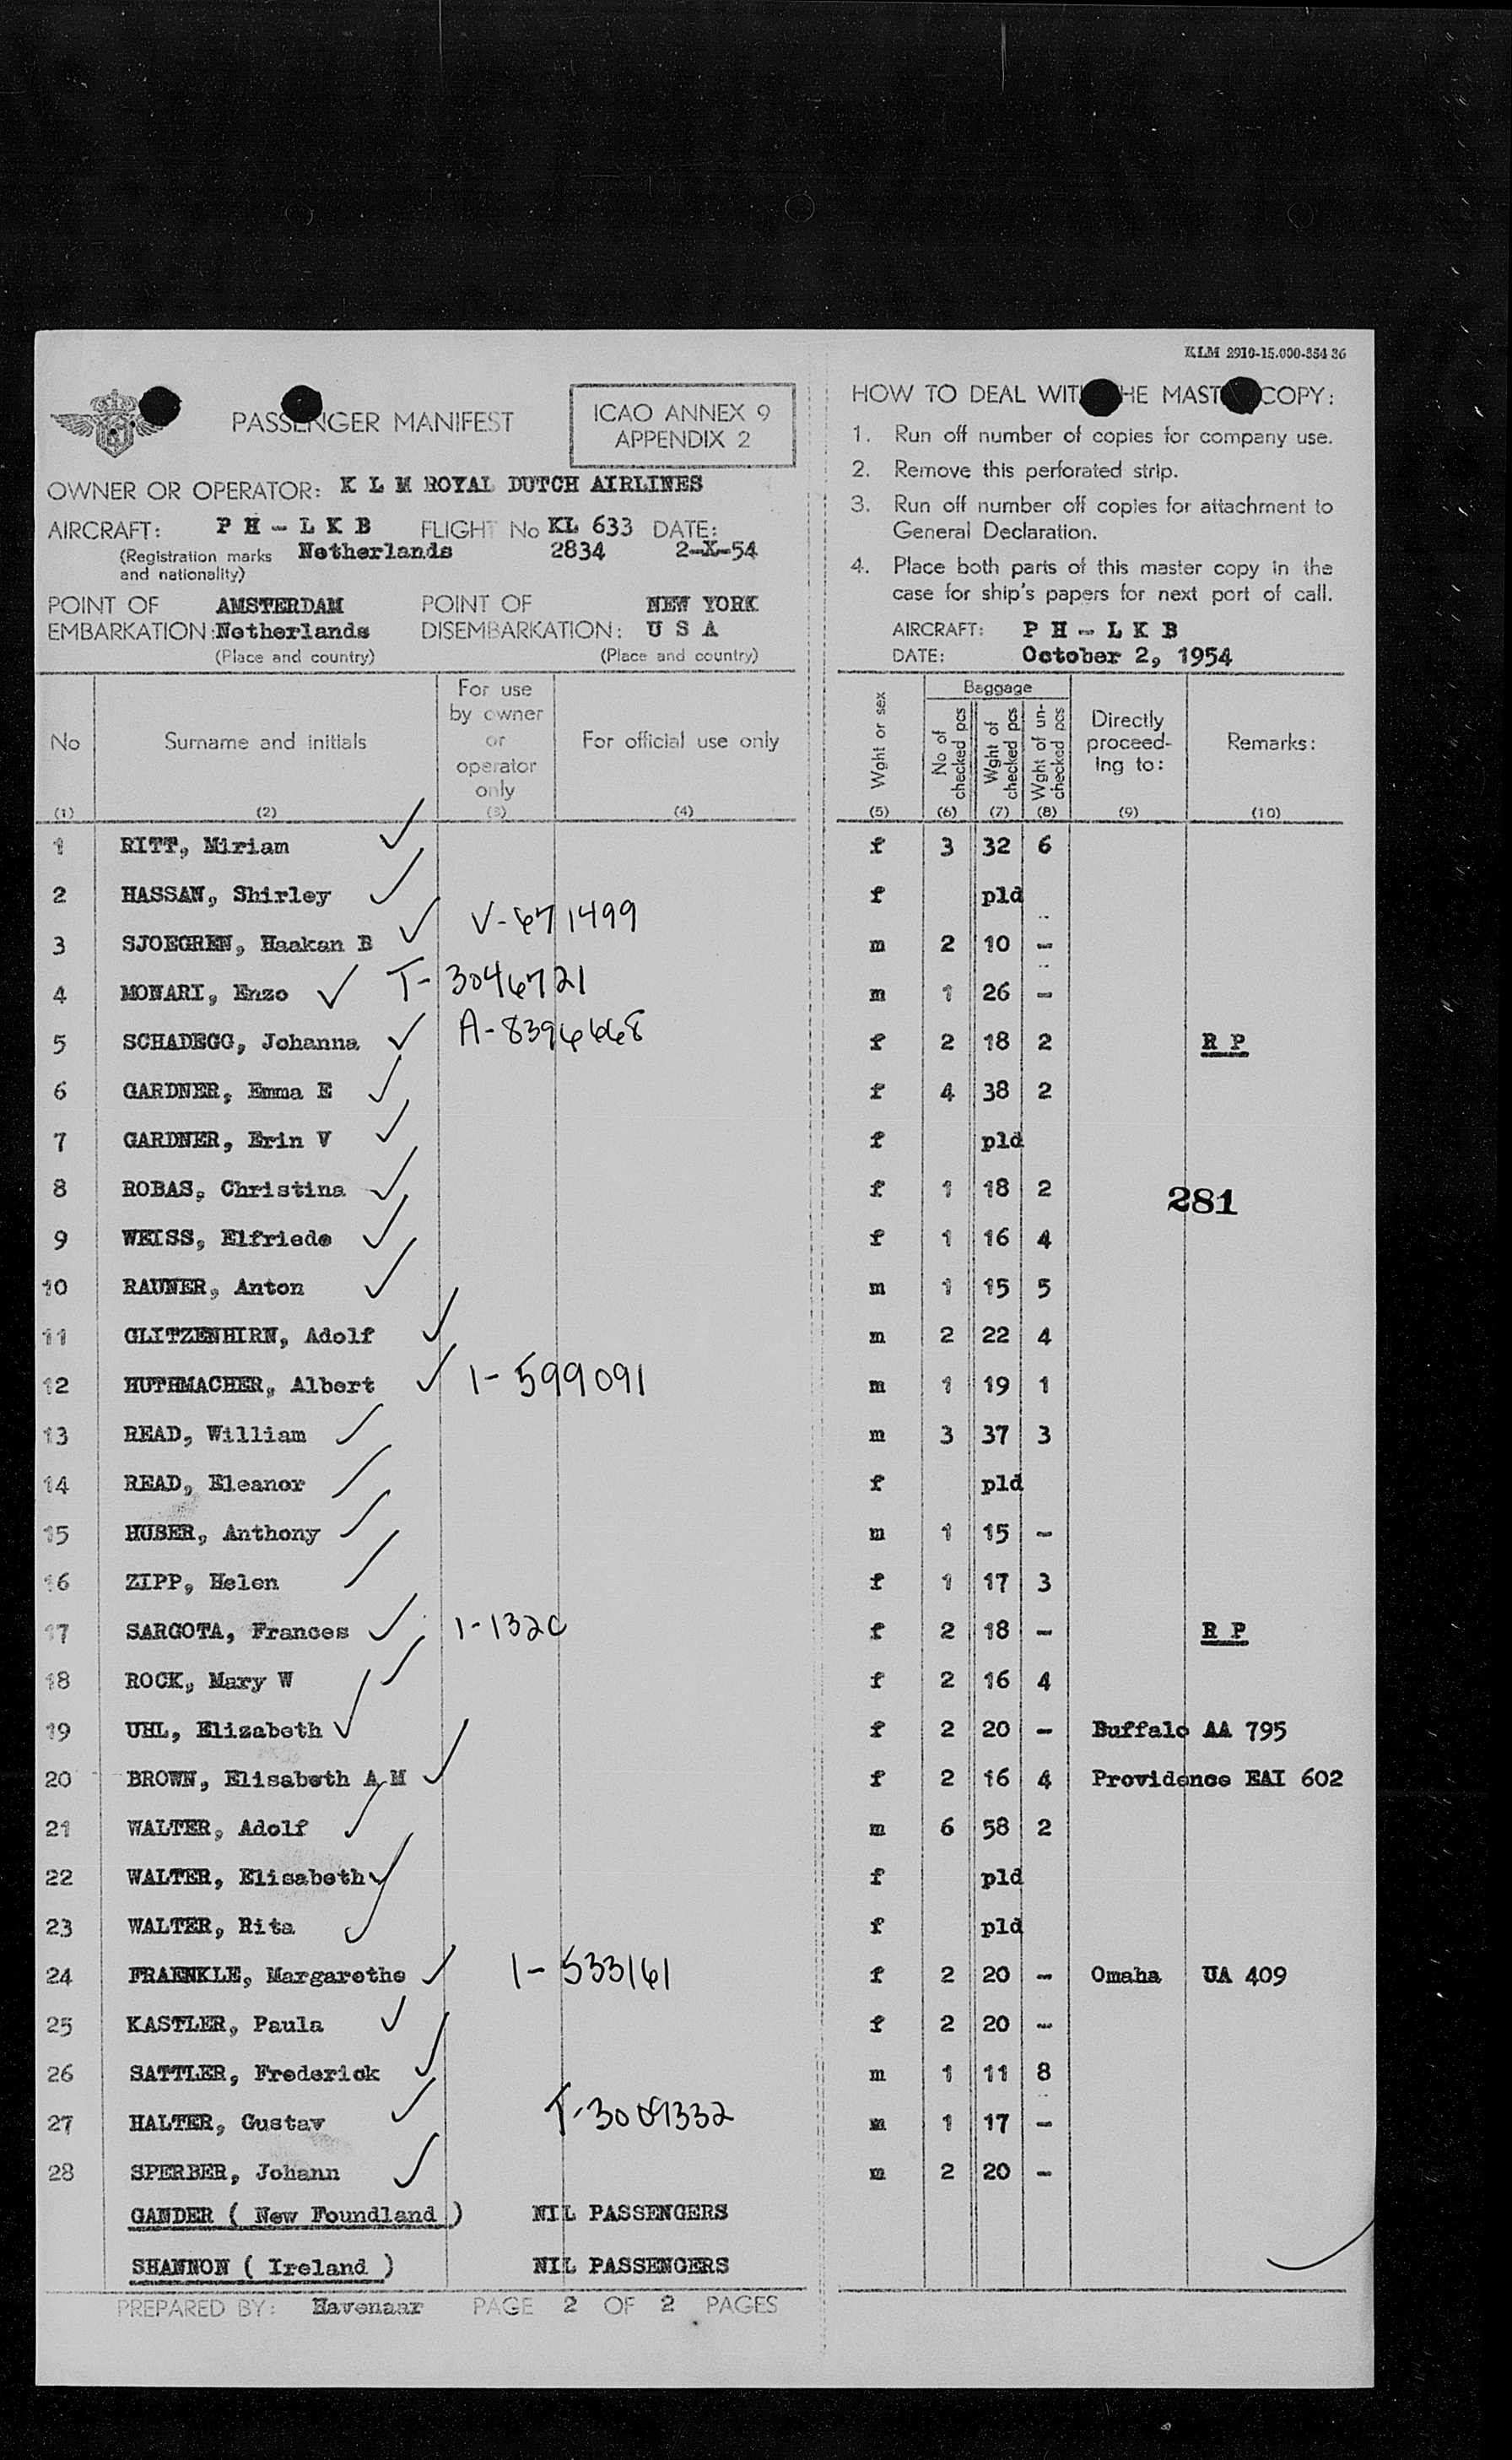 KLM 2910-15.000-354 36
PASSENGER MANIFEST
ICAO ANNEX 9
APPENDIX 2
OWNER OR OPERATOR: K L M ROYAL DUTCH AIRLINES
AIRCRAFT: P H - L K B FLIGHT No KL 633 DATE:
(Registration marks and nationality) Netherlands 2834 2-X-54
POINT OF AMSTERDAM POINT OF NEW YORK
EMBARKATION: Netherlands DISEMBARKATION: U S A
(Place and country) (Place and country)
HOW TO DEAL WITH THE MASTER COPY:
1. Run off number of copies for company use.
2. Remove this perforated strip.
3. Run off number off copies for attachment to
General Declaration.
4. Place both parts of this master copy in the
case for ship's papers for next port of call.
AIRCRAFT: P H - L K B
DATE: October 2, 1954
No Surname and initials For use by owner or operator only For official use only Wght or sex Baggage No of checked pcs Wght of checked pcs Wght of un-checked pcs Directly proceed-ing to: Remarks:
(1) (2) (3) (4) (5) (6) (7) (8) (9) (10)
1 RITT, Miriam f 3 32 6
2 HASSAN, Shirley f pld
3 SJOEGREN, Haakan B V-671499 m 2 10 -
4 MONARI, Enzo T-3046721 m 1 26 -
5 SCHADEGG, Johanna A-8396668 f 2 18 2 R P
6 GARDNER, Emma E f 4 38 2
7 GARDNER, Erin V f pld
8 ROBAS, Christina f 1 18 2
281
9 WEISS, Elfriede f 1 16 4
10 RAUNER, Anton m 1 15 5
11 GLITZENHIRN, Adolf m 2 22 4
12 HUTHMACHER, Albert 1-599091 m 1 19 1
13 READ, William m 3 37 3
14 READ, Eleanor f pld
15 HUBER, Anthony m 1 15 -
16 ZIPP, Helen f 1 17 3
17 SARGOTA, Frances 1-132C f 2 18 - R P
18 ROCK, Mary W f 2 16 4
19 UHL, Elizabeth f 2 20 - Buffalo AA 795
20 BROWN, Elisabeth A M f 2 16 4 Providence EAI 602
21 WALTER, Adolf m 6 58 2
22 WALTER, Elisabeth f pld
23 WALTER, Rita f pld
24 FRAENKLE, Margarethe 1-533161 f 2 20 - Omaha UA 409
25 KASTLER, Paula f 2 20 -
26 SATTLER, Frederick m 1 11 8
27 HALTER, Gustav m 1 17 -
28 SPERBER, Johann m 2 20 -
GANDER ( New Foundland ) NIL PASSENGERS
SHANNON ( Ireland ) NIL PASSENGERS
PREPARED BY: Havenaar PAGE 2 OF 2 PAGES